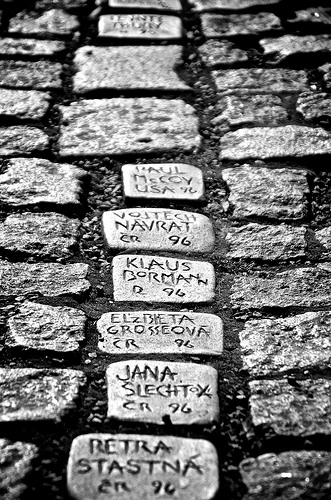 PAUL
USA 96
VOJTECH
NAVRAT
ČR 96
KLAUS
BORMANN
D 96
ELZBIETA
GROSSEOVÁ
ČR 96
JANA
SLECHTOV
ČR 96
PETRA
STASTNÁ
ČR 96